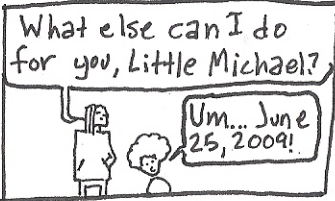 What else can I do
for you, Little Michael?
Um... June
25, 2009!